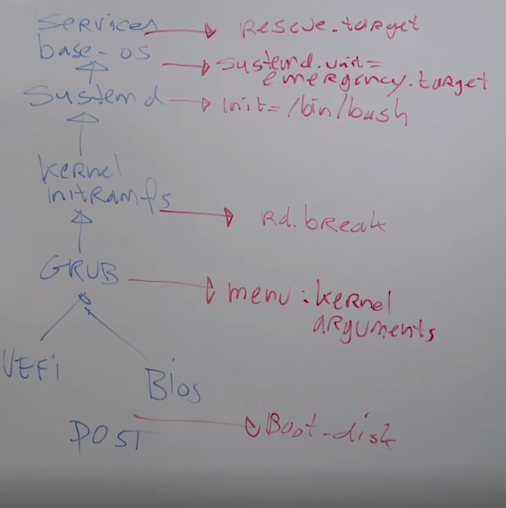 Services → Rescue.target
base-os → Systemd.unit=
emergency.target
Systemd → init=/bin/bash
kernel
initRamfs → Rd.break
GRUB → menu: kernel
arguments
UEFi
Bios
POST → Boot-disk